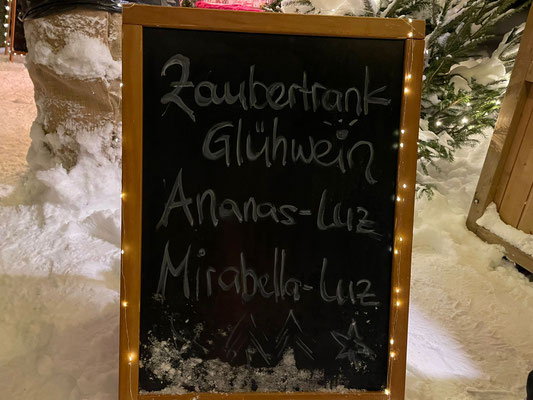 Zaubertrank
Glühwein
Ananas-Luz
Mirabella-Luz